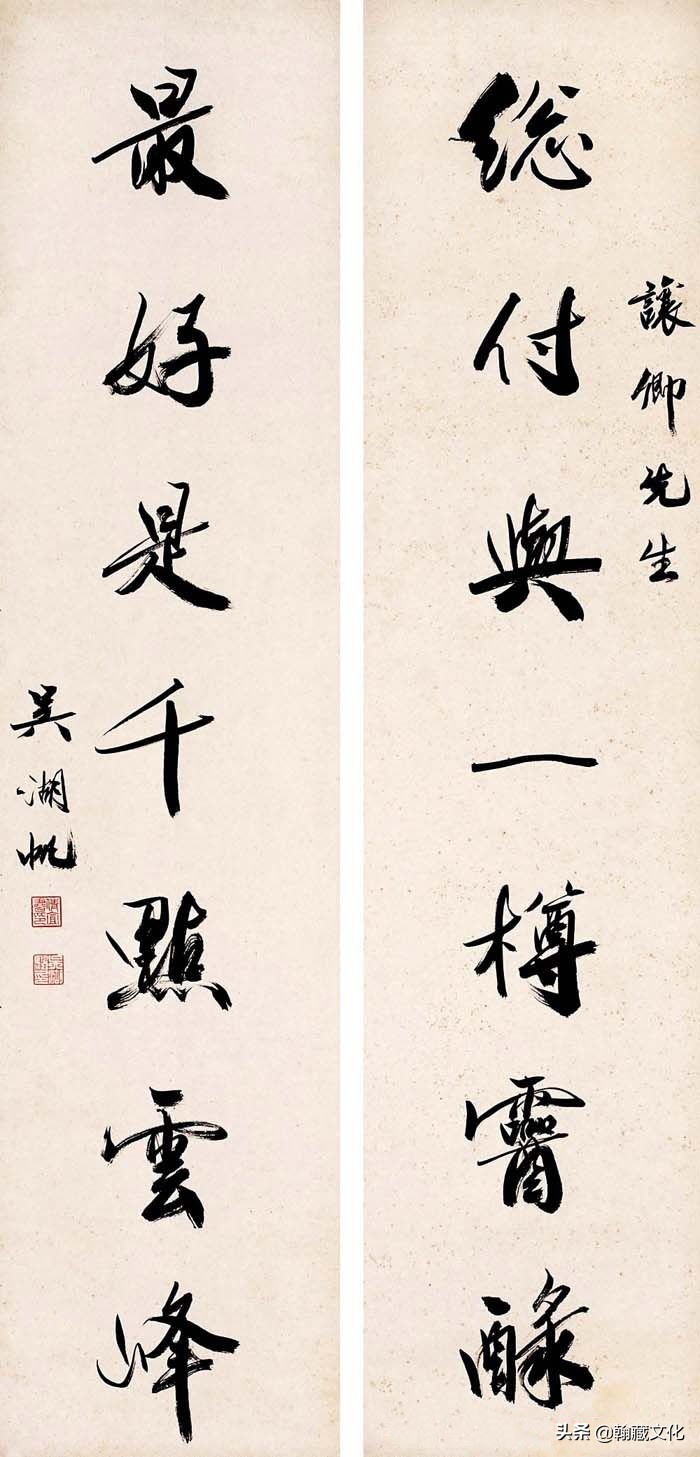 讓卿先生
総付與一樽醽醁
最好是千點雲峰
吳湖帆
头条 @翰藏文化